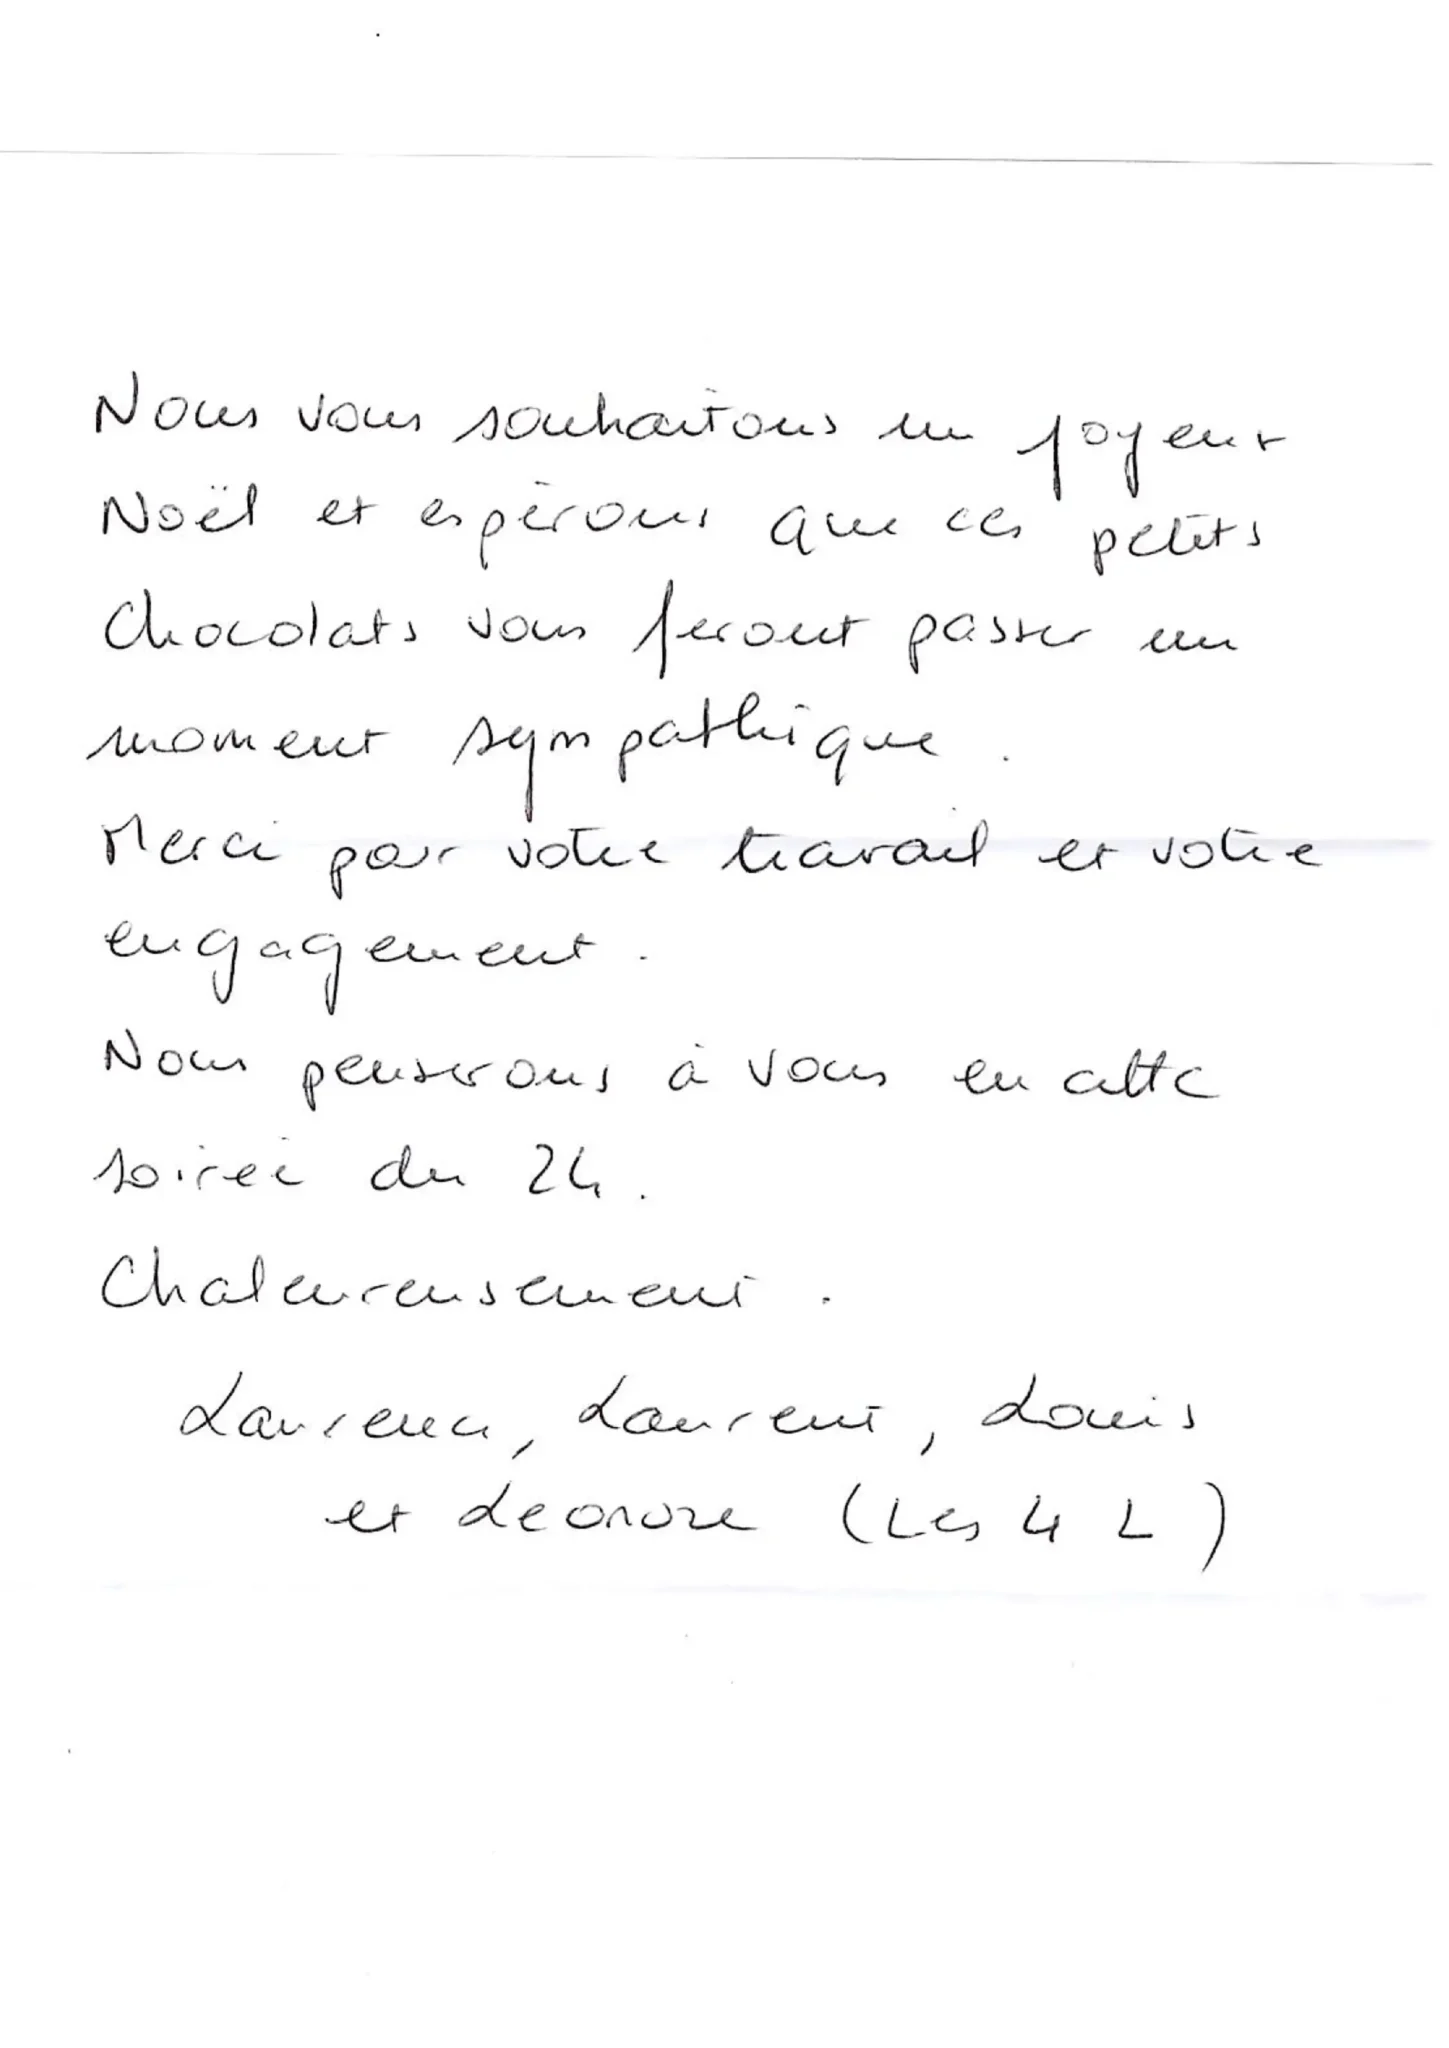 Nous vous souhaitons un joyeux
Noël et espérons que ces petits
Chocolats vous feront passer un
moment sympathique.
Merci pour votre travail et votre
engagement.
Nous penserons à vous en cette
soirée du 24.
Chaleureusement.
Laurence, Laurent, Louis
et Léonore (Les 4 L)